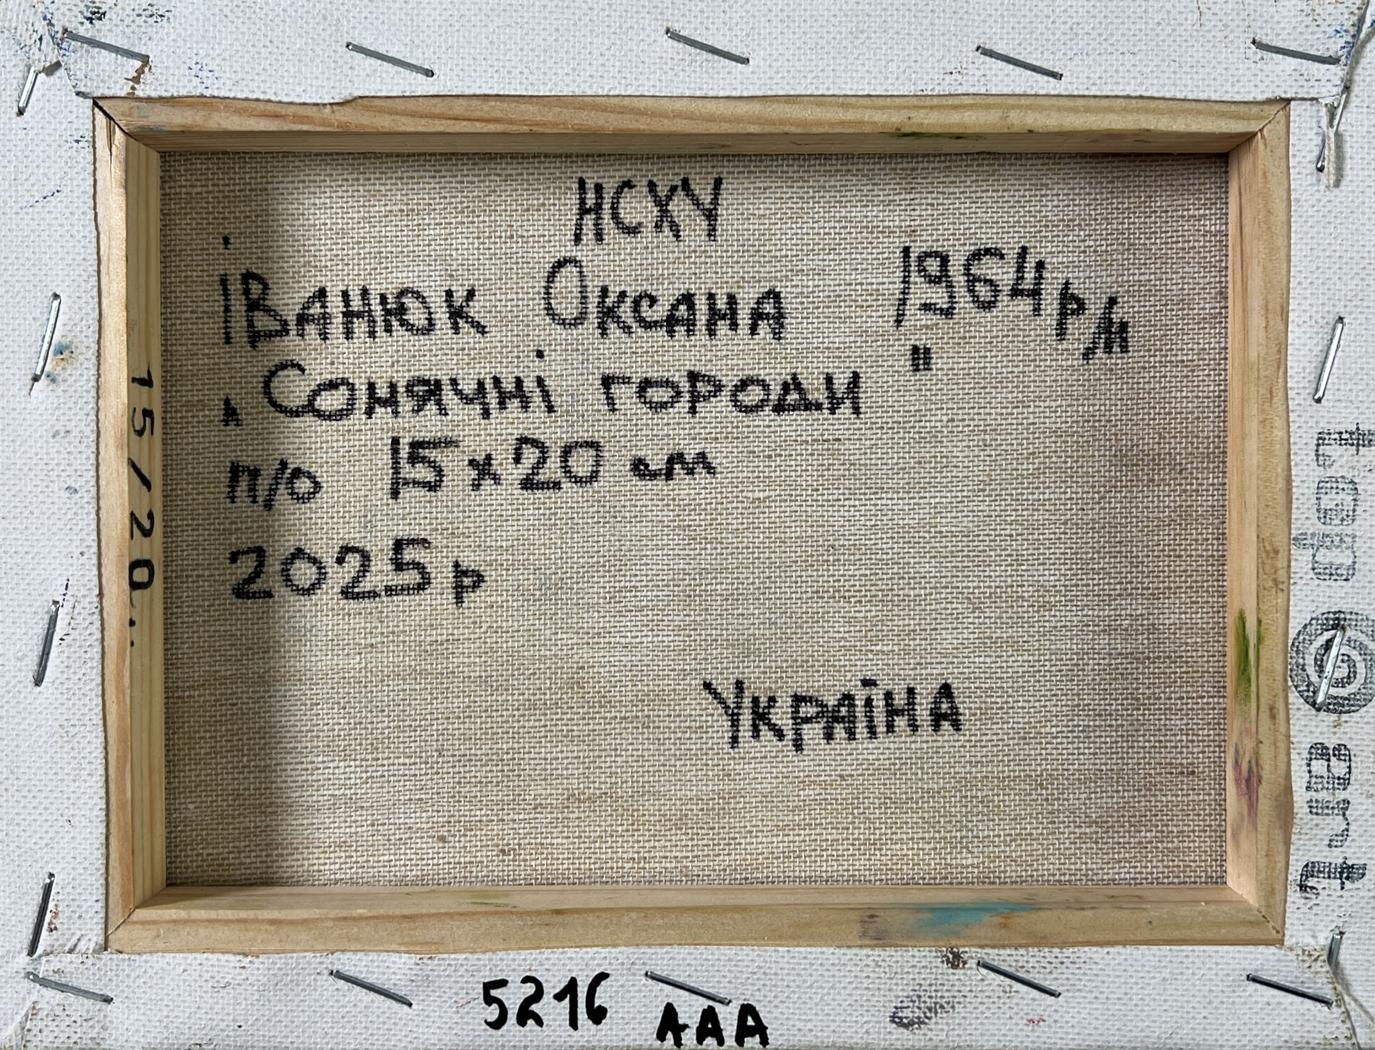 НСХУ
Іванюк Оксана 1964 р/н
„Сонячні городи"
п/о 15х20 см
2025 р
Україна
15/20
5216
ААА
art